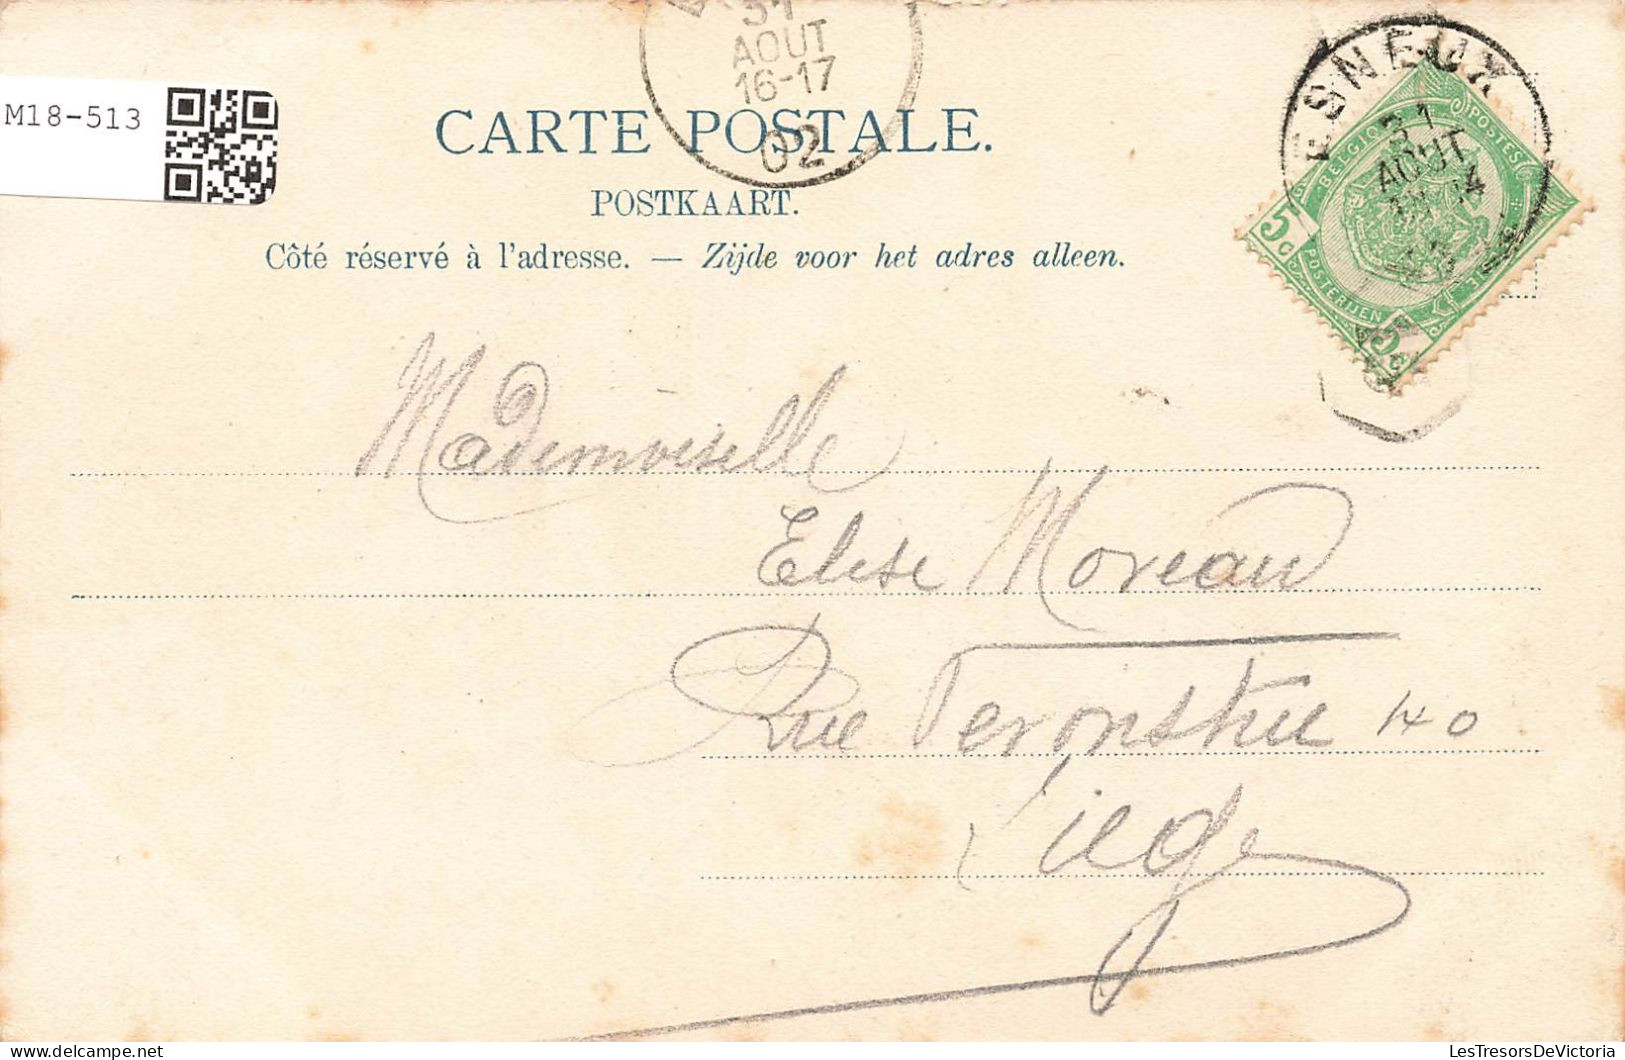 M18-513
31
AOUT
16-17
02
CARTE POSTALE.
POSTKAART.
Côté réservé à l'adresse. — Zijde voor het adres alleen.
ESNEUX
31
AOUT
BELGIQUE
POSTES
5 c.
POSTERIJEN
5 c.
Mademoiselle
Elise Moreau
Rue 140
Liège
LesTresorsDeVictoria.com